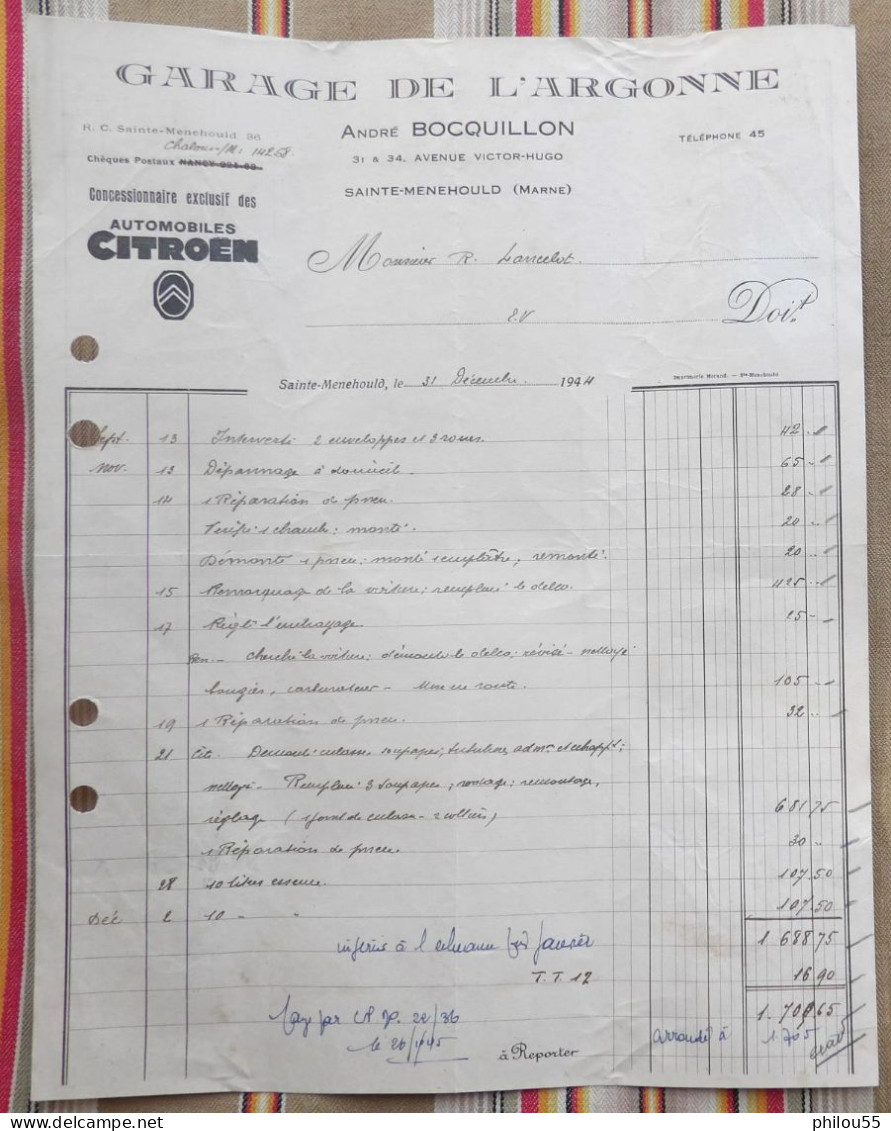 GARAGE DE L'ARGONNE
R. C. Sainte-Menehould 86
Chalons/M: 14268.
Chèques Postaux NANCY
ANDRÉ BOCQUILLON
31 & 34, AVENUE VICTOR-HUGO
SAINTE-MENEHOULD (MARNE)
TÉLÉPHONE 45
Concessionnaire exclusif des
AUTOMOBILES
CITROËN
Monsieur R. Lancelot.
E.V
Doit
Sainte-Menehould, le 31 Décembre 1944
Imprimerie Morand. — Ste-Menehould
Sept. 13 Interverti 2 enveloppes et 3 roues. 42
Nov. 13 Dépannage à domicil 65
14 1 Réparation de pneu. 28
Verifié 1 chambre: monté. 20
Démonté 1 pneu; monté 1 emplâtre, remonté. 20
15 Remorquage de la voiture; remplacé le delco. 425
17 Réglé l'embrayage 25
cherché la voiture; démonté le delco; révisé - nettoyé
bougies, carburateur - Mise en route. 105
19 1 Réparation de pneu. 32
21 Cit. Demonté culasse, soupapes, tubulures adm. et echappt;
nettoyé - Remplacé 3 soupapes, rodage; remontage,
réglage (1 joint de culasse - 2 colliers) 681 75
1 Réparation de pneu 30
28 10 litres essence. 107.50
Déc 2 10 - " 107.50
à l'échéance fin Janvier
1 688 75
T.T. 12 16 90
1.705 65
Payé par CP No. 22/36
le 26/1/45
à Reporter
arrondi à 1.705
philou55